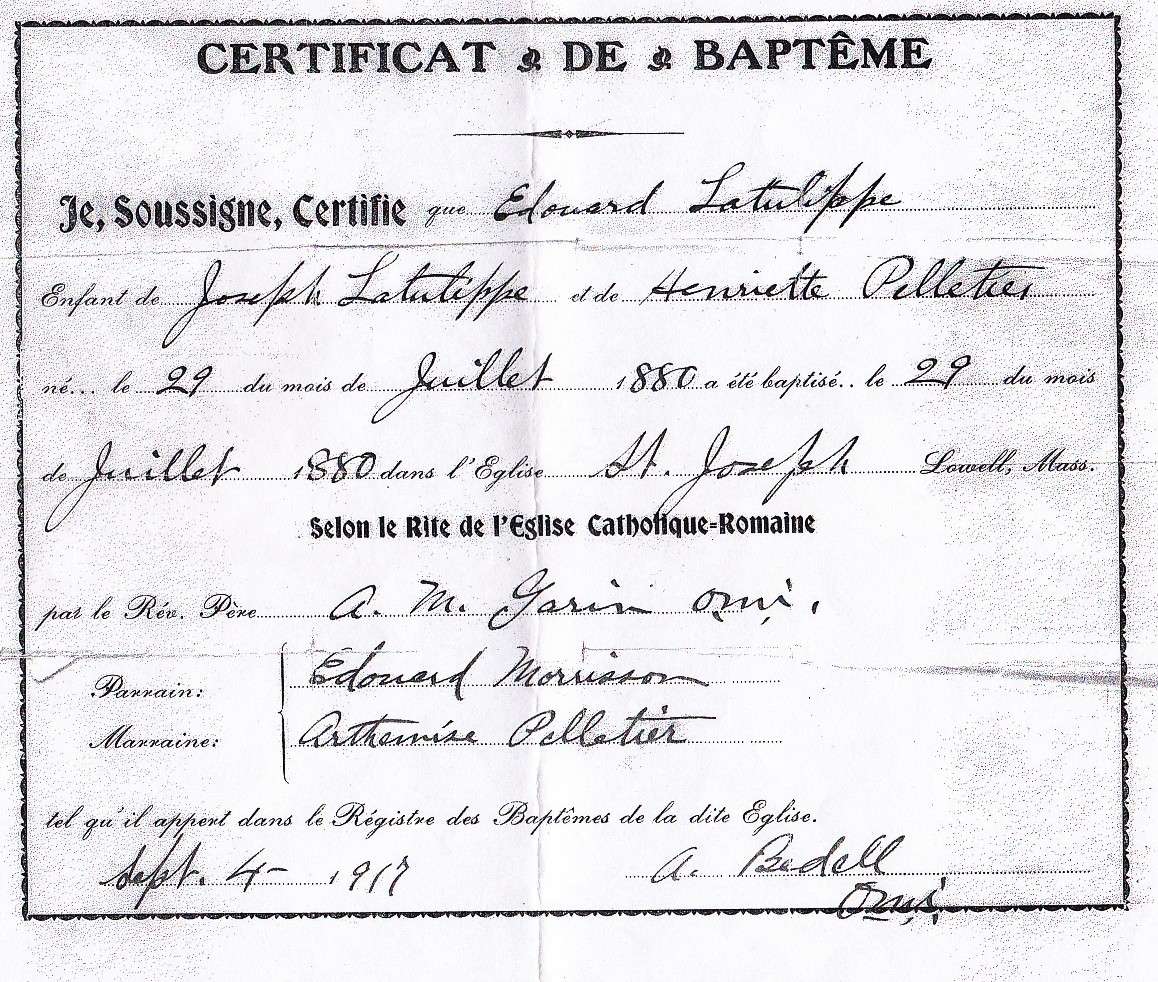 CERTIFICAT DE BAPTÊME
Je, Soussigne, Certifie que Edouard Latulippe
Enfant de Joseph Latulippe et de Henriette Pelletier
né... le 29 du mois de Juillet 1880 a été baptisé.. le 29 du mois
de Juillet 1880 dans l'Eglise St. Joseph Lowell, Mass.
Selon le Rite de l'Eglise Catholique-Romaine
par le Rév. Père A. M. Garin omi.
Parrain: Edouard Morrisson
Marraine: Arthemise Pelletier
tel qu'il appert dans le Régistre des Baptêmes de la dite Eglise.
Sept. 4- 1917 A. Bedell
omi.